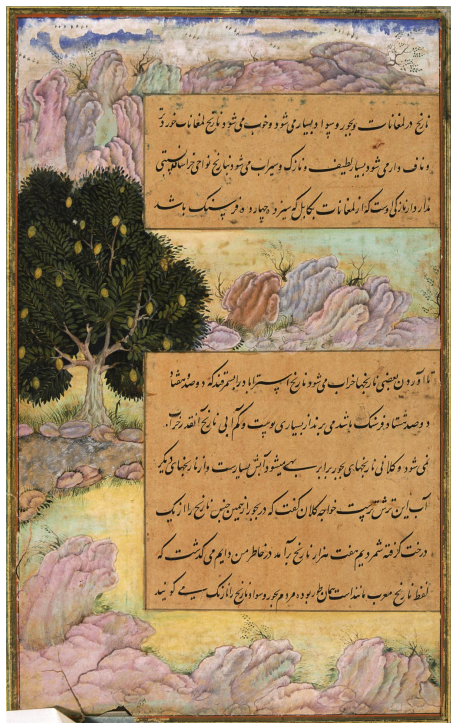 نارنج در لمغانات و بجور و سواد بسیار می شود و خوب می شود نارنج لمغانات خوردتر
و ناف دار می شود بسیار لطیف و نازک و سیراب می شود نارنج نواحی خراسان نسبتی
ندارد از نازکی اوست که از لمغانات بکابل که سیزده چهارده فرسنک باشد
تا آوردن بعضی نارنجها خراب می شود نارنج استراباد را بسمرقند که دوصد و هفتاد
دوصد هشتاد فرسنک باشد می برند از بسیاری پوست و کم آبی نارنج آنقدر خراب
نمی شود و کلانی نارنجهای بجور برابر بهی میشود آبش بسیارست و از نارنجهای دیگر
آب این ترش ترست خواجه کلان گفت که در بجور از همین جنس نارنج را از یک
درخت گرفته شمردیم هفت هزار نارنج برآمد در خاطر من دایم می گذشت که
لفظ نارنج معرب مانند است همان طور بوده مردم بجور و سواد نارنج را نارنک می گویند